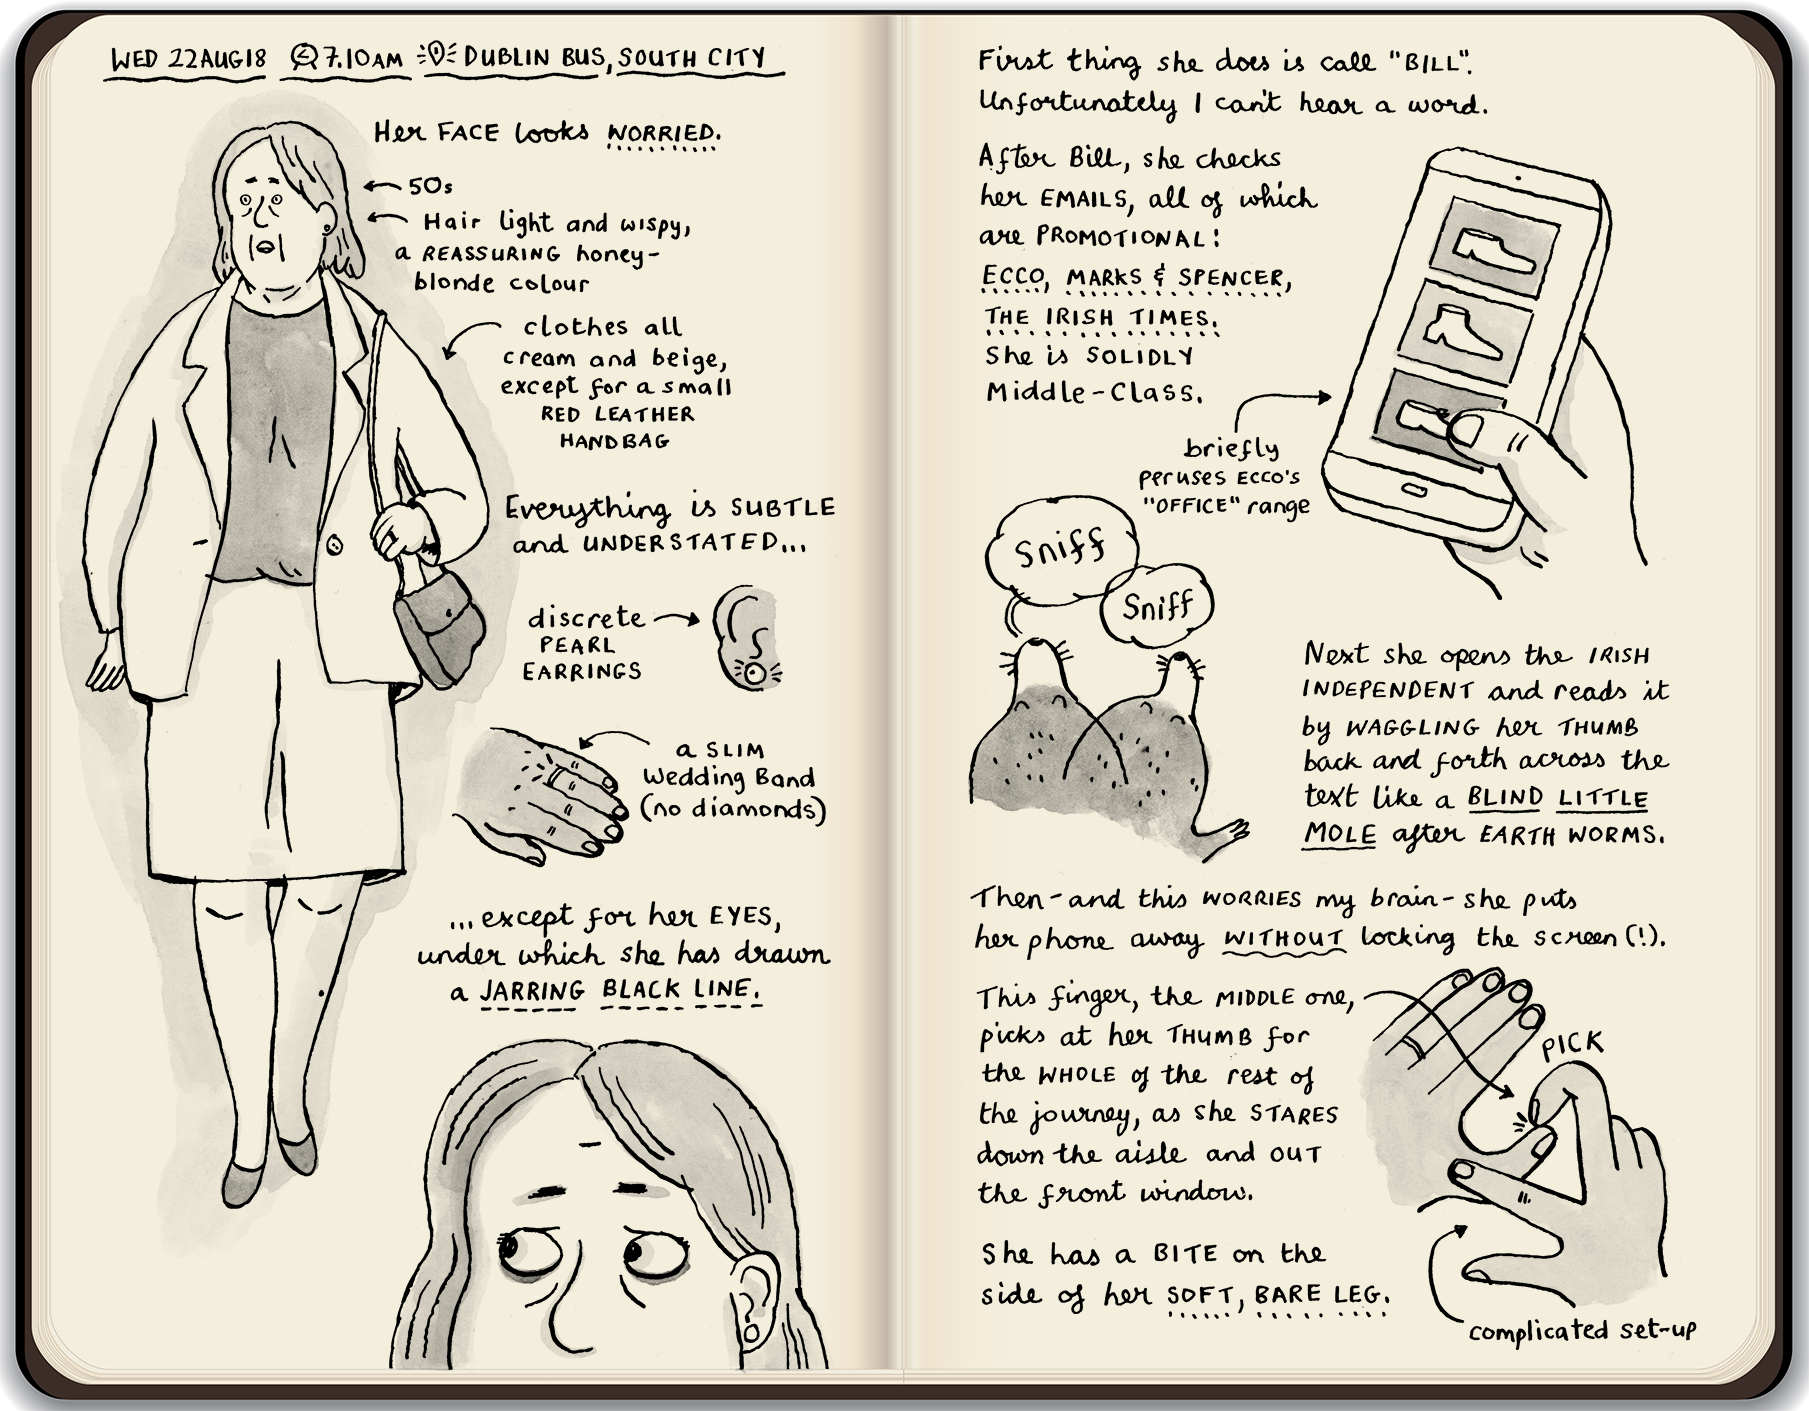 WED 22AUG18 7.10AM DUBLIN BUS, SOUTH CITY
Her FACE looks WORRIED.
50s
Hair light and wispy,
a REASSURING honey-
blonde colour
clothes all
cream and beige,
except for a small
RED LEATHER
HANDBAG
Everything is SUBTLE
and UNDERSTATED...
discrete
PEARL
EARRINGS
a SLIM
Wedding Band
(no diamonds)
...except for her EYES,
under which she has drawn
a JARRING BLACK LINE.
First thing she does is call "BILL".
Unfortunately I can't hear a word.
After Bill, she checks
her EMAILS, all of which
are PROMOTIONAL:
ECCO, MARKS & SPENCER,
THE IRISH TIMES.
She is SOLIDLY
Middle-Class.
briefly
peruses ECCO'S
"OFFICE" range
Sniff
Sniff
Next she opens the IRISH
INDEPENDENT and reads it
by WAGGLING her THUMB
back and forth across the
text like a BLIND LITTLE
MOLE after EARTH WORMS.
Then-and this WORRIES my brain-she puts
her phone away WITHOUT locking the screen(!).
This finger, the MIDDLE one,
picks at her THUMB for
the WHOLE of the rest of
the journey, as she STARES
down the aisle and OUT
the front window.
PICK
She has a BITE on the
side of her SOFT, BARE LEG.
complicated set-up